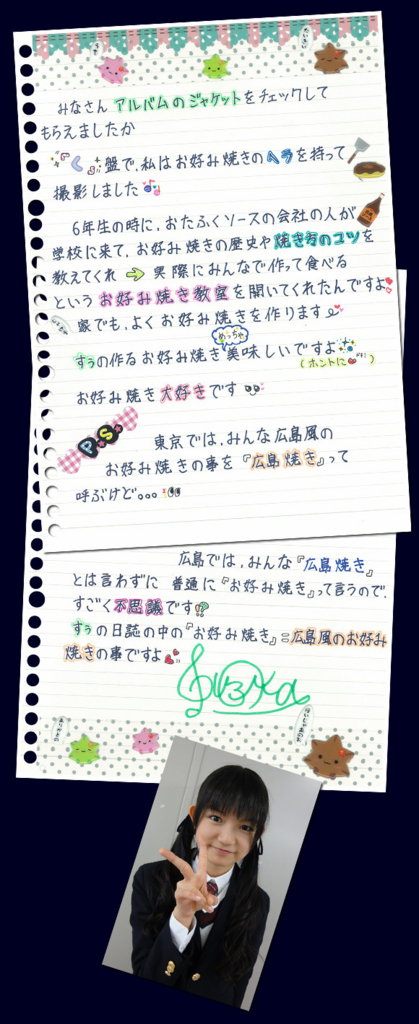 みなさん アルバムのジャケットをチェックして
もらえましたか
"く"盤で、私はお好み焼きのヘラを持って
撮影しました
6年生の時に、おたふくソースの会社の人が
学校に来て、お好み焼きの歴史や焼き方のコツを
教えてくれ ⇨ 実際にみんなで作って食べる
という お好み焼き教室を開いてくれたんですよ
家でも、よくお好み焼きを作ります
めっちゃ
すぅの作るお好み焼き美味しいですよ
(ホントに)
お好み焼き大好きです
P.S.
東京では、みんな広島風の
お好み焼きの事を『広島焼き』って
呼ぶけど。。。
広島では、みんな『広島焼き』
とは言わずに 普通に『お好み焼き』って言うので、
すごく不思議です!?
すぅの日誌の中の『お好み焼き』=広島風のお好み
焼きの事ですよ
ありがとの